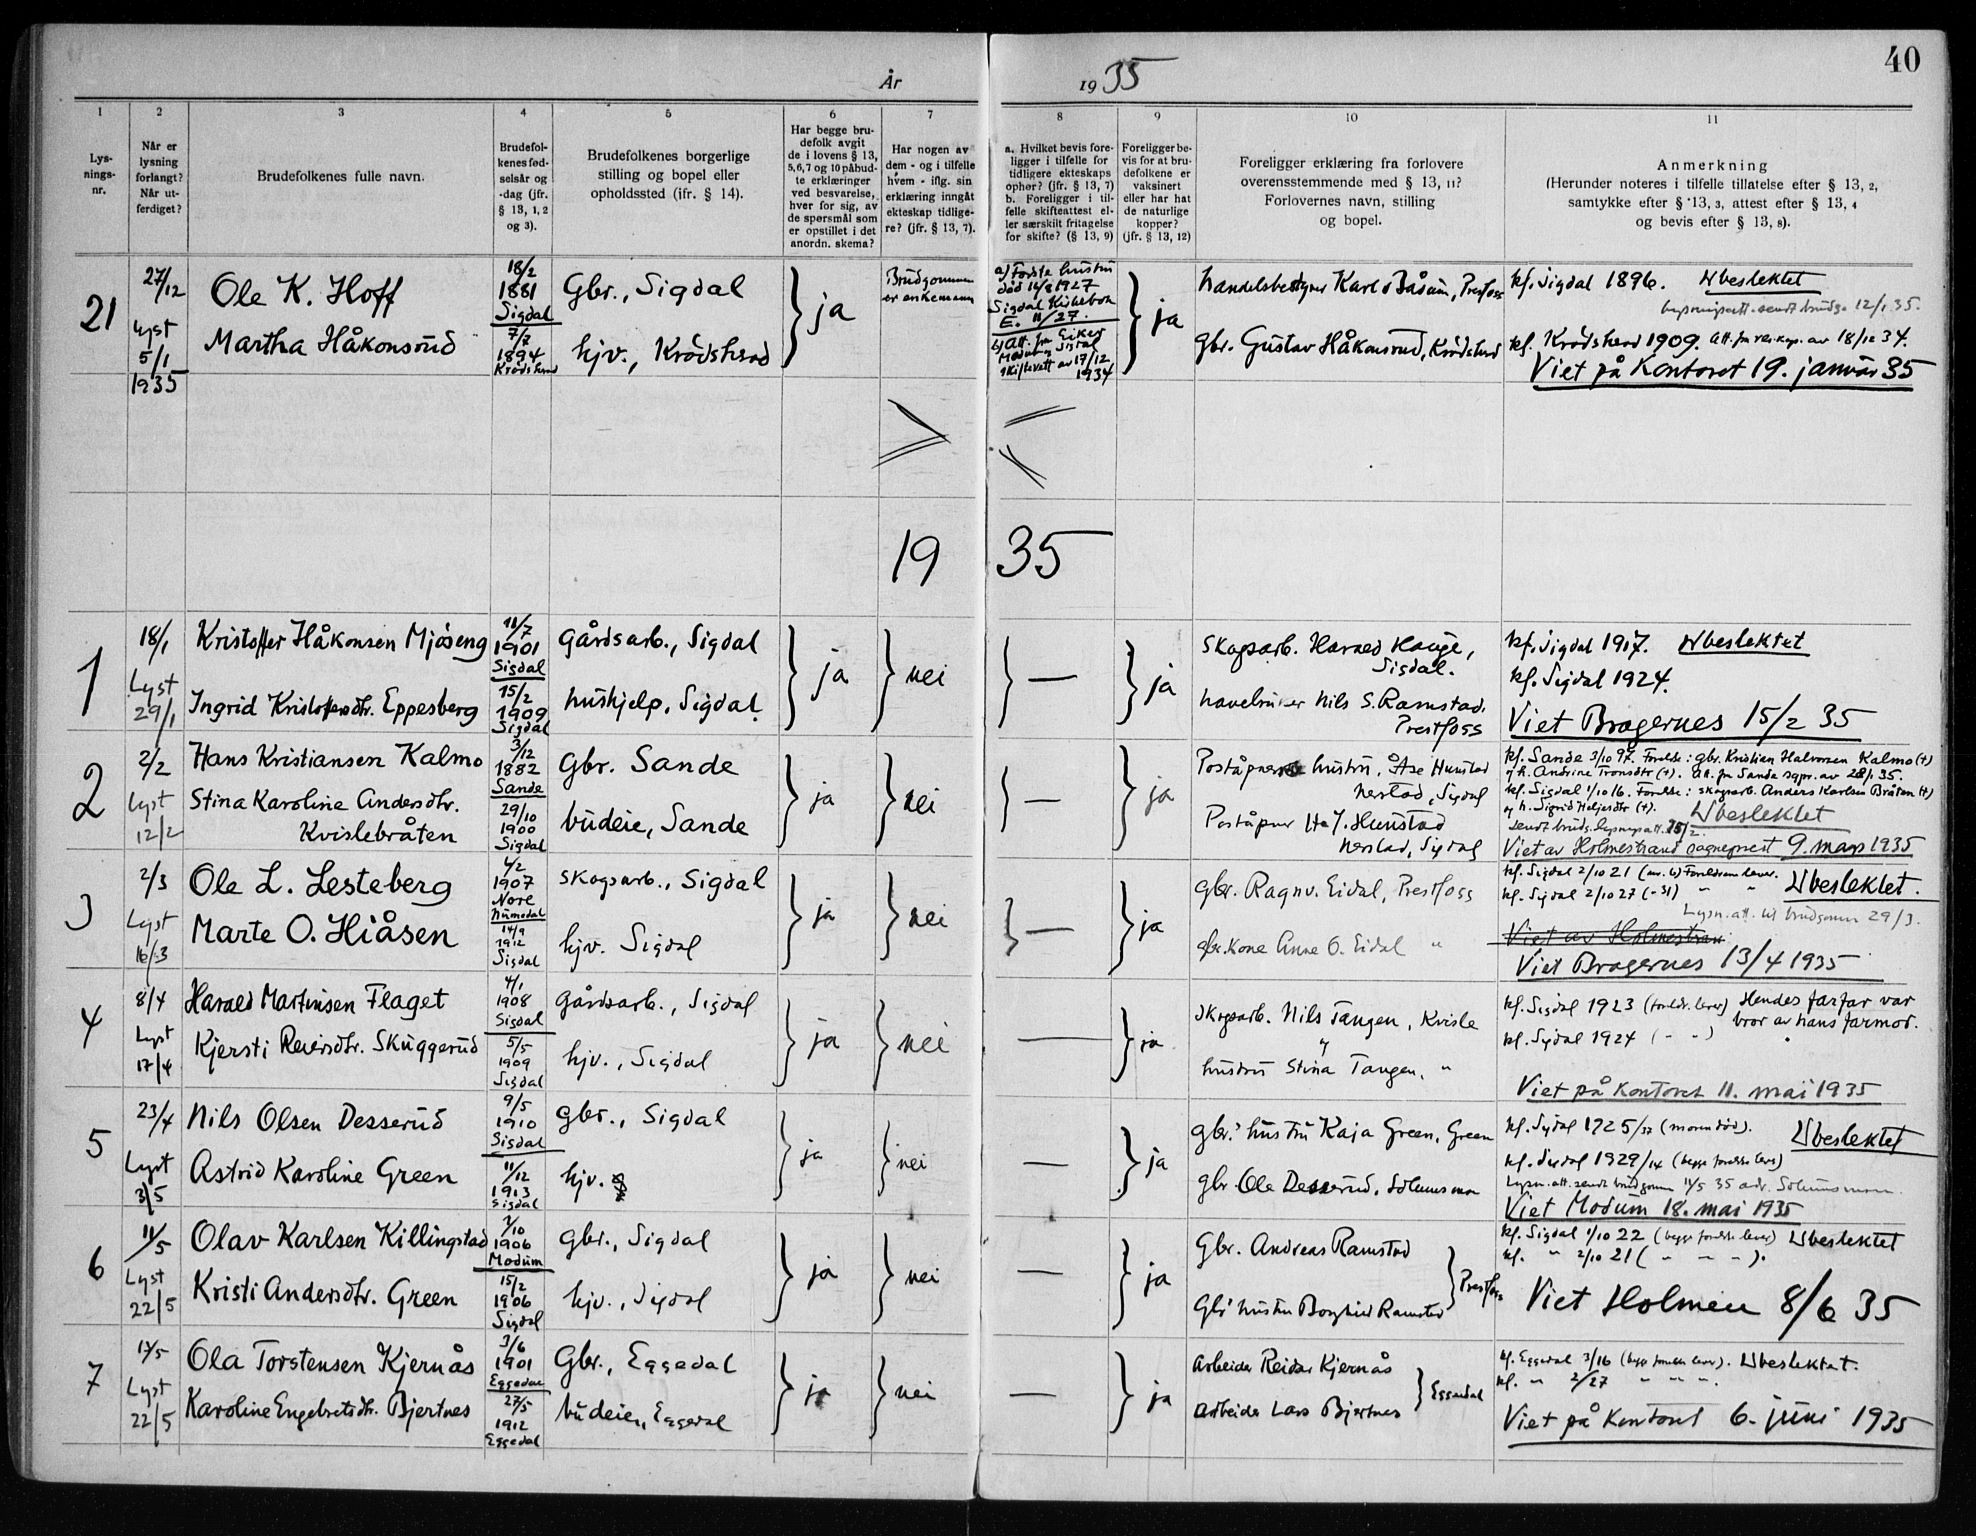 40
År 1935
1
Lysningsnr.
2
Når er lysning forlangt? Når utferdiget?
3
Brudefolkenes fulle navn.
4
Brudefolkenes fødselsår og -dag (jfr. § 13, 1, 2 og 3).
5
Brudefolkenes borgerlige stilling og bopel eller opholdssted (ifr. § 14).
6
Har begge brudefolk avgit de i lovens § 13, 5,6,7 og 10 påbudte erklæringer ved besvarelse, hver for sig, av de spørsmål som er opstillet i det anordn. skema?
7
Har nogen av dem - og i tilfelle hvem - iflg. sin erklæring inngåt ekteskap tidligere? (jfr. § 13, 7).
8
a. Hvilket bevis foreligger i tilfelle for tidligere ekteskaps ophør? (jfr. § 13, 7) b. Foreligger i tilfelle skifteattest eller særskilt fritagelse for skifte? (§ 13, 9)
9
Foreligger bevis for at brudefolkene er vaksinert eller har hat de naturlige kopper? (jfr. § 13, 12)
10
Foreligger erklæring fra forlovere overensstemmende med § 13, 11? Forlovernes navn, stilling og bopel.
11
Anmerkning
(Herunder noteres i tilfelle tillatelse efter § 13, 2, samtykke efter § 13, 3, attest efter § 13, 4 og bevis efter § 13, 8).
21
27/12
Lyst
5/1
1935
Ole K. Hoff
Martha Håkonsrud
18/2
1881
Sigdal
7/7
1894
Krødsherad
Gbr., Sigdal
hjv., Krødsherad
ja
Brudgommen
er enkemann
a) Første hustru
død 14/8 1927
Sigdal Kirkebok
E. 11/27.
b) Att. fra Eiker
Modum og Sigdal
skifterett av 17/12
1934
ja
Handelsbestyrer Karl Båsum, Prestfoss
gbr. Gustav Håkonsrud, Krødsherad
kf. Sigdal 1896. Ubeslektet
lysningsatt. sendt brudg. 12/1 35.
kf. Krødsherad 1909. att. fra res.kap. av 18/12 34.
Viet på Kontoret 19. januar 35
19 35
1
18/1
Lyst
29/1
Kristoffer Håkonsen Mjøseng
Ingrid Kristoffersdtr. Eppesberg
11/7
1901
Sigdal
15/2
1909
Sigdal
gårdsarb., Sigdal
hushjelp, Sigdal.
ja
nei
—
ja
Skogsarb. Harald Hauge,
Sigdal.
Nils S. Ramstad,
Prestfoss
kf. Sigdal 1917. Ubeslektet
kf. Sigdal 1924.
Viet Bragernes 15/2 35
2
2/2
Lyst
12/2
Hans Kristiansen Kalmo
Stina Karoline Andersdtr.
Kvislebråten
3/12
1882
Sande
29/10
1900
Sigdal
Gbr. Sande
budeie, Sande
ja
nei
—
ja
Poståpner hustru, Åse Hunstad
Nerstad, Sigdal
Poståpner Hunstad
Nerstad, Sigdal
kf. Sande 3/10 97. Foreldre: gbr. Kristian Halvorsen Kalmo (+)
og h. Andrine Tronsdtr (+). att. fra Sande sgpr. av 28/1 35.
kf. Sigdal 1/10 16. Foreldre: skogsarb. Anders Karlsen Bråten (+)
og h. Sigrid Heljesdtr (+). Ubeslektet
sendt brudg. lysningsatt. 25/2.
Viet av Holmestrand sogneprest 9. mars 1935
3
2/3
Lyst
16/3
Ole L. Lesteberg
Marte O. Hiåsen
4/2
1907
Nore
Numedal
14/9
1912
Sigdal
skogsarb., Sigdal
hjv. Sigdal
ja
nei
—
ja
gbr. Ragnv. Eidal, Prestfoss
gbr.kone Anne O. Eidal "
kf. Sigdal 2/10 21 Foreldrene lever. Ubeslektet.
kf. Sigdal 2/10 27 " "
Lysn. att. til brudgommen 29/3.
Viet av Holmestran
Viet Bragernes 13/4 1935
4
8/4
Lyst
17/4
Harald Martinsen Flaget
Kjersti Reiersdtr. Skuggerud
4/1
1908
Sigdal
5/5
1909
Sigdal
gårdsarb., Sigdal
hjv., Sigdal
ja
nei
—
ja
skogsarb. Nils Tangen, Kvisle
og
hustru Stina Tangen, "
kf. Sigdal 1923 (foreldr. lever) Hendes farfar var
bror av hans farmor.
kf. Sigdal 1924 (- -)
Viet på kontoret 11. mai 1935
5
23/4
Lyst
3/5
Nils Olsen Desserud
Astrid Karoline Green
9/5
1910
Sigdal
11/12
1913
Sigdal
gbr., Sigdal
hjv.
ja
nei
—
ja
gbr.' hustru Kaja Green, Green
gbr Ole Desserud, Solumsmoen
kf. Sigdal 1925 (moren død). Ubeslektet
kf. Sigdal 1929/14 (begge foreldre lever)
Lysn. att. sendt brudgommen 11/5 35 adr. Solumsmoen.
Viet Modum 18. mai 1935
6
11/5
Lyst
22/5
Olav Karlsen Killingstad
Kristi Andersdtr. Green
1/10
1906
Modum
15/2
1906
Sigdal
gbr., Sigdal
hjv., Sigdal
ja
nei
—
ja
Gbr. Andreas Ramstad
Gbr' hustru Borghild Ramstad
Prestfoss
kf. Sigdal 1/10 22 (begge foreldre lever) Ubeslektet
kf. " 2/10 21 ( - - - ).
Viet Holmen 8/6 35
7
Lyst
22/5
Ola Torstensen Kjernås
Karoline Engebretsdtr. Bjertnes
3/6
1901
Eggedal
27/5
1912
Eggedal
Gbr., Eggedal
budeie, Eggedal
ja
nei
—
ja
Arbeider Reidar Kjernås
Arbeider Lars Bjertnes
Eggedal
kf. Eggedal 3/16 (begge foreldre lever). Ubeslektet.
kf. " 2/27 " " ".
Viet på kontoret 6. juni 1935